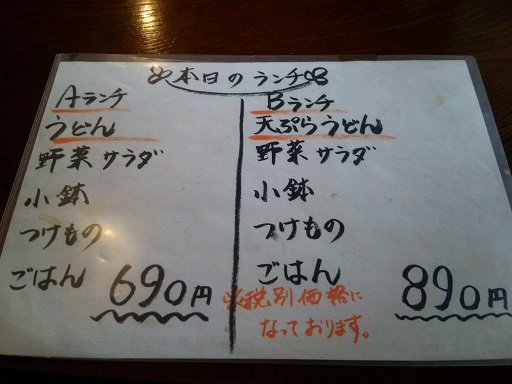 本日のランチ
Aランチ
うどん
野菜サラダ
小鉢
つけもの
ごはん
690円
Bランチ
天ぷらうどん
野菜サラダ
小鉢
つけもの
ごはん
890円
※税別価格に
なっております。